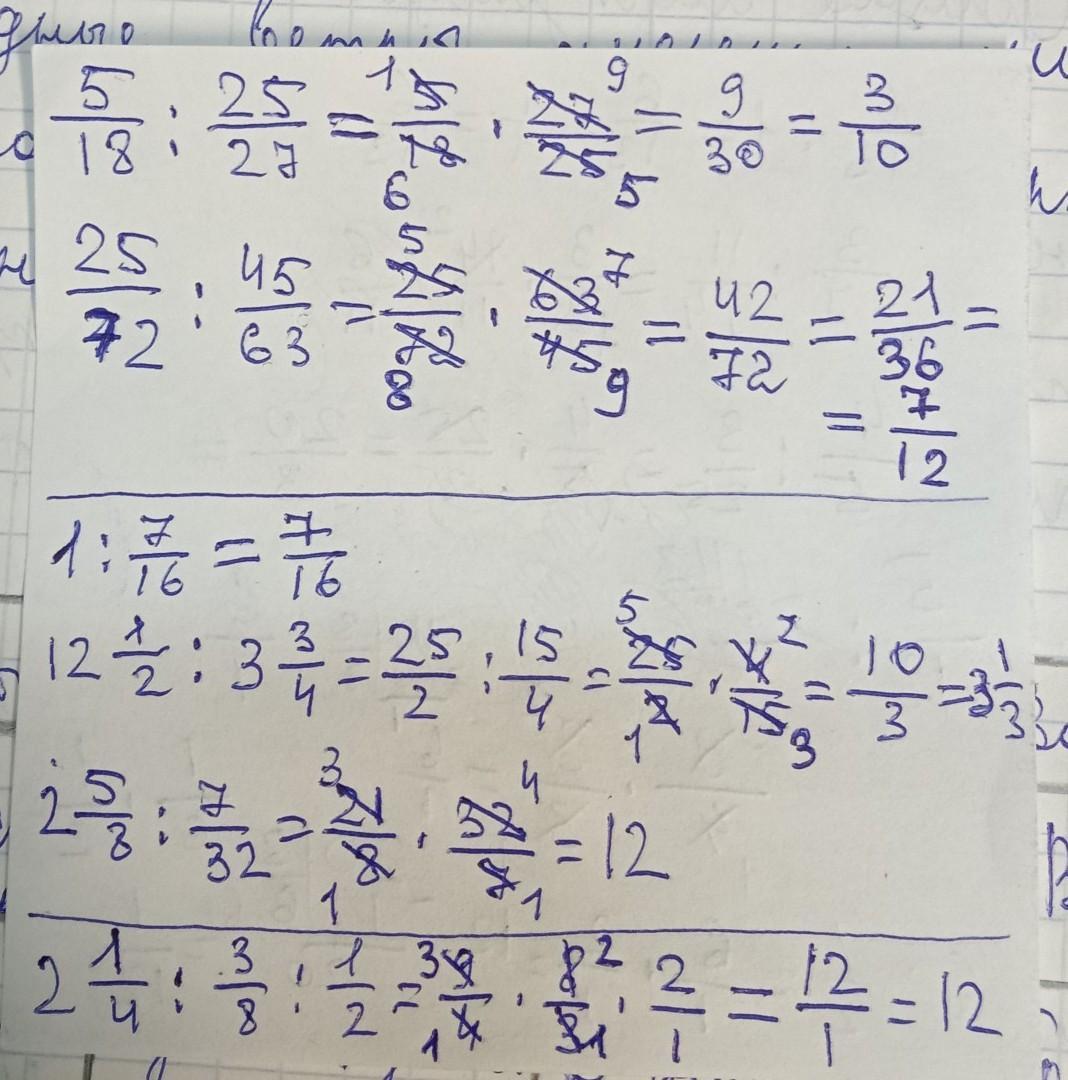 5/18 : 25/27 = 1 5/18 6 · 27/25 9 5 = 9/30 = 3/10
25/72 : 45/63 = 5 25/72 8 · 63/45 7 9 = 42/72 = 21/36 =
= 7/12
1 : 7/16 = 7/16
12 1/2 : 3 3/4 = 25/2 : 15/4 = 5 25/2 1 · 4/15 2 3 = 10/3 = 3 1/3
2 5/8 : 7/32 = 3 21/8 1 · 32/7 4 1 = 12
2 1/4 : 3/8 : 1/2 = 3 9/4 1 · 8/3 2 1 · 2/1 = 12/1 = 12